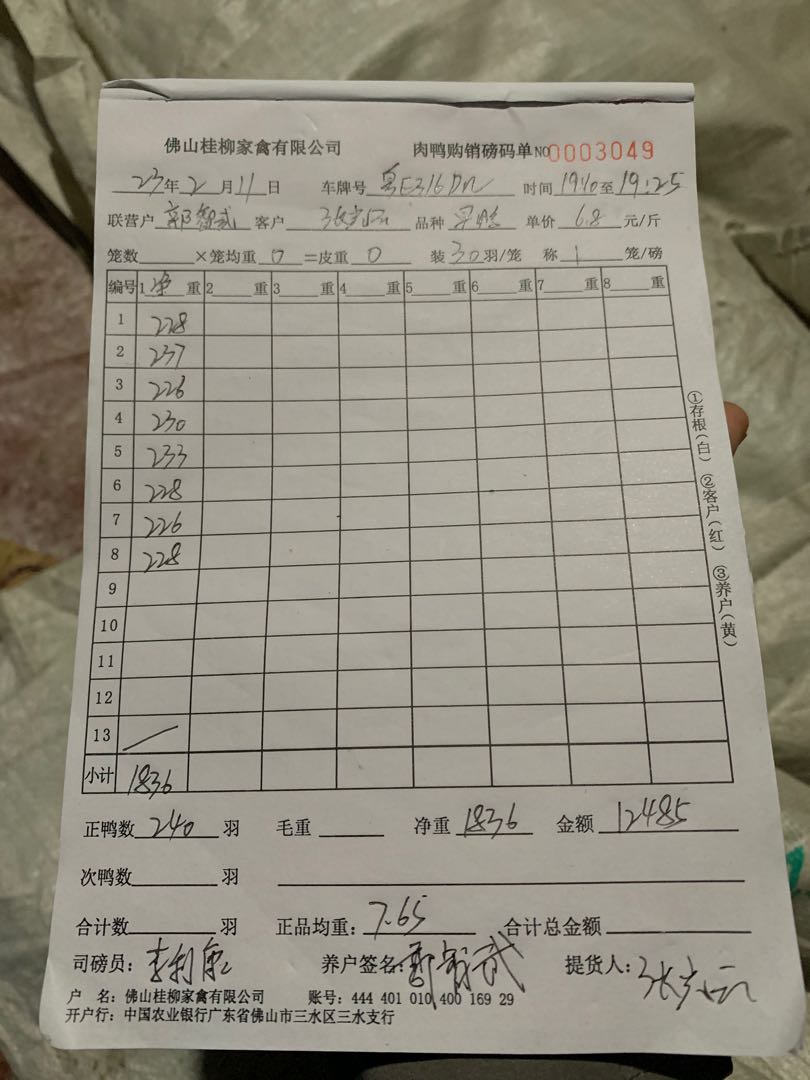 佛山桂柳家禽有限公司 肉鸭购销磅码单NO 0003049
23年2月11日 车牌号 粤E316DN 时间19:10至19:25
联营户 郭智武 客户 品种 单价 6.8 元/斤
笼数 ×笼均重 0 =皮重 0 装30羽/笼 称 1 笼/磅
编号 1 净 重 2 重 3 重 4 重 5 重 6 重 7 重 8 重
1 228
2 237
3 226
4 230
5 233
6 228
7 226
8 228
9
10
11
12
13
小计 1836
①存根(白) ②客户(红) ③养户(黄)
正鸭数 240 羽 毛重 净重 1836 金额 12485
次鸭数 羽
合计数 羽 正品均重: 7.65 合计总金额
司磅员: 养户签名: 郭智武 提货人:
户 名: 佛山桂柳家禽有限公司 账号: 444 401 010 400 169 29
开户行: 中国农业银行广东省佛山市三水区三水支行